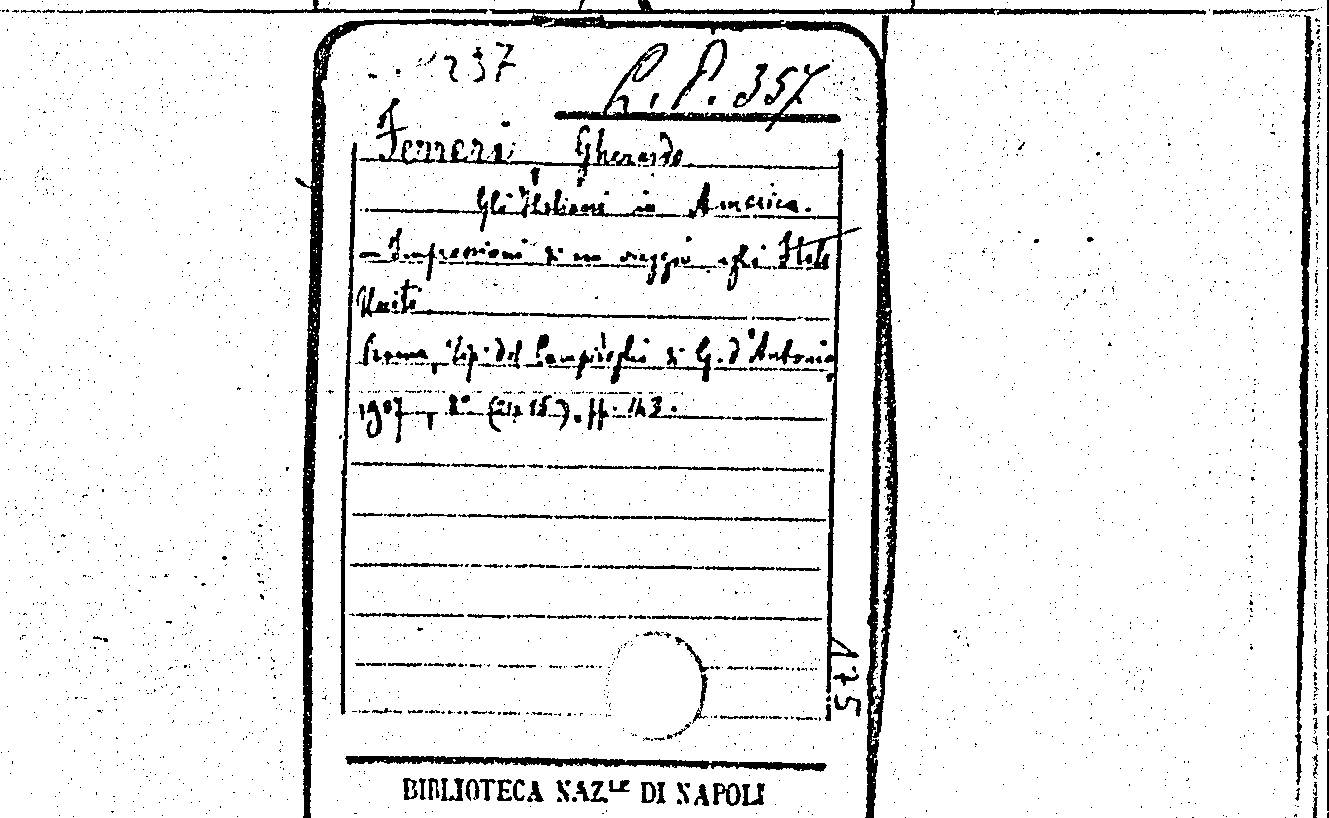 237
L. P. 357
Ferreri Gherardo
Gli Italiani in America.
– Impressioni di un viaggio agli Stati
Uniti.
Roma, Tip. del Campidoglio di G. d'Antonis,
1907, 8° (21x15), pp. 143.
St. V
BIBLIOTECA NAZ.LE DI NAPOLI